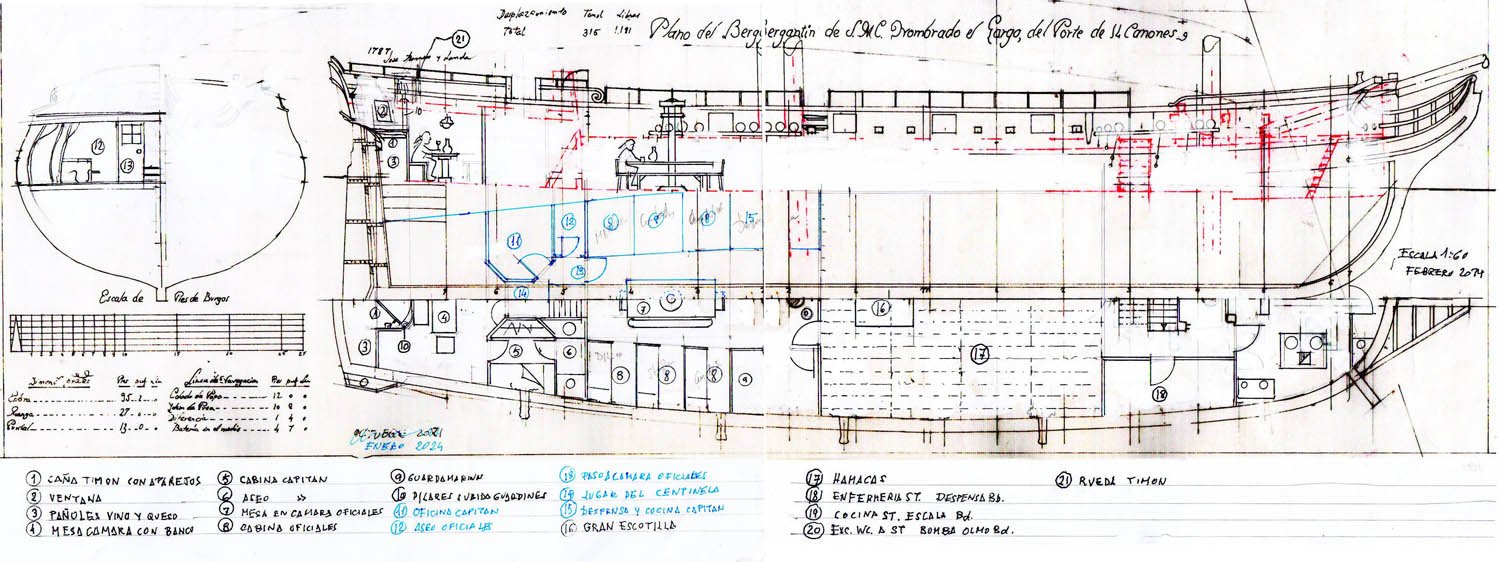 Desplazamiento Tonel Libras
Total 315 1,191
Plano del Bergantin de S.M.C. el del Porte de 14 Cañones
1787
Jose y Landa
21
2
10
3
12
13
11
12
13
14
15
ESCALA 1:60
FEBRERO 2024
Escala de Pies de Burgos
1
3
10
4
5
6
7
8
8
8
9
16
17
18
Pies
Linea de Navegacion Pies
95
Calado de Popa 12 0 0
Manga 27
Idem de Proa 10 8 0
Puntal 13 0
Diferencia 1 4 0
Bateria en el medio 4 7 0
OCTUBRE 2021
ENERO 2024
1 CAÑA TIMON CON APAREJOS
2 VENTANA
3 PAÑOLES VINO Y QUESO
4 MESA CAMARA CON BANCO
5 CABINA CAPITAN
6 ASEO »
7 MESA EN CAMARA OFICIALES
8 CABINA OFICIALES
9 GUARDAMARINA
10 PILARES SUBIDA GUARDINES
11 OFICINA CAPITAN
12 ASEO OFICIALES
13 PASO A CAMARA OFICIALES
14 LUGAR DEL CENTINELA
15 DESPENSA Y COCINA CAPITAN
16 GRAN ESCOTILLA
17 HAMACAS
18 ENFERMERIA ST. DESPENSA BA.
19 COCINA ST. ESCALA Bd.
20 EXC. WC. A ST BOMBA OLMO Bd.
21 RUEDA TIMON